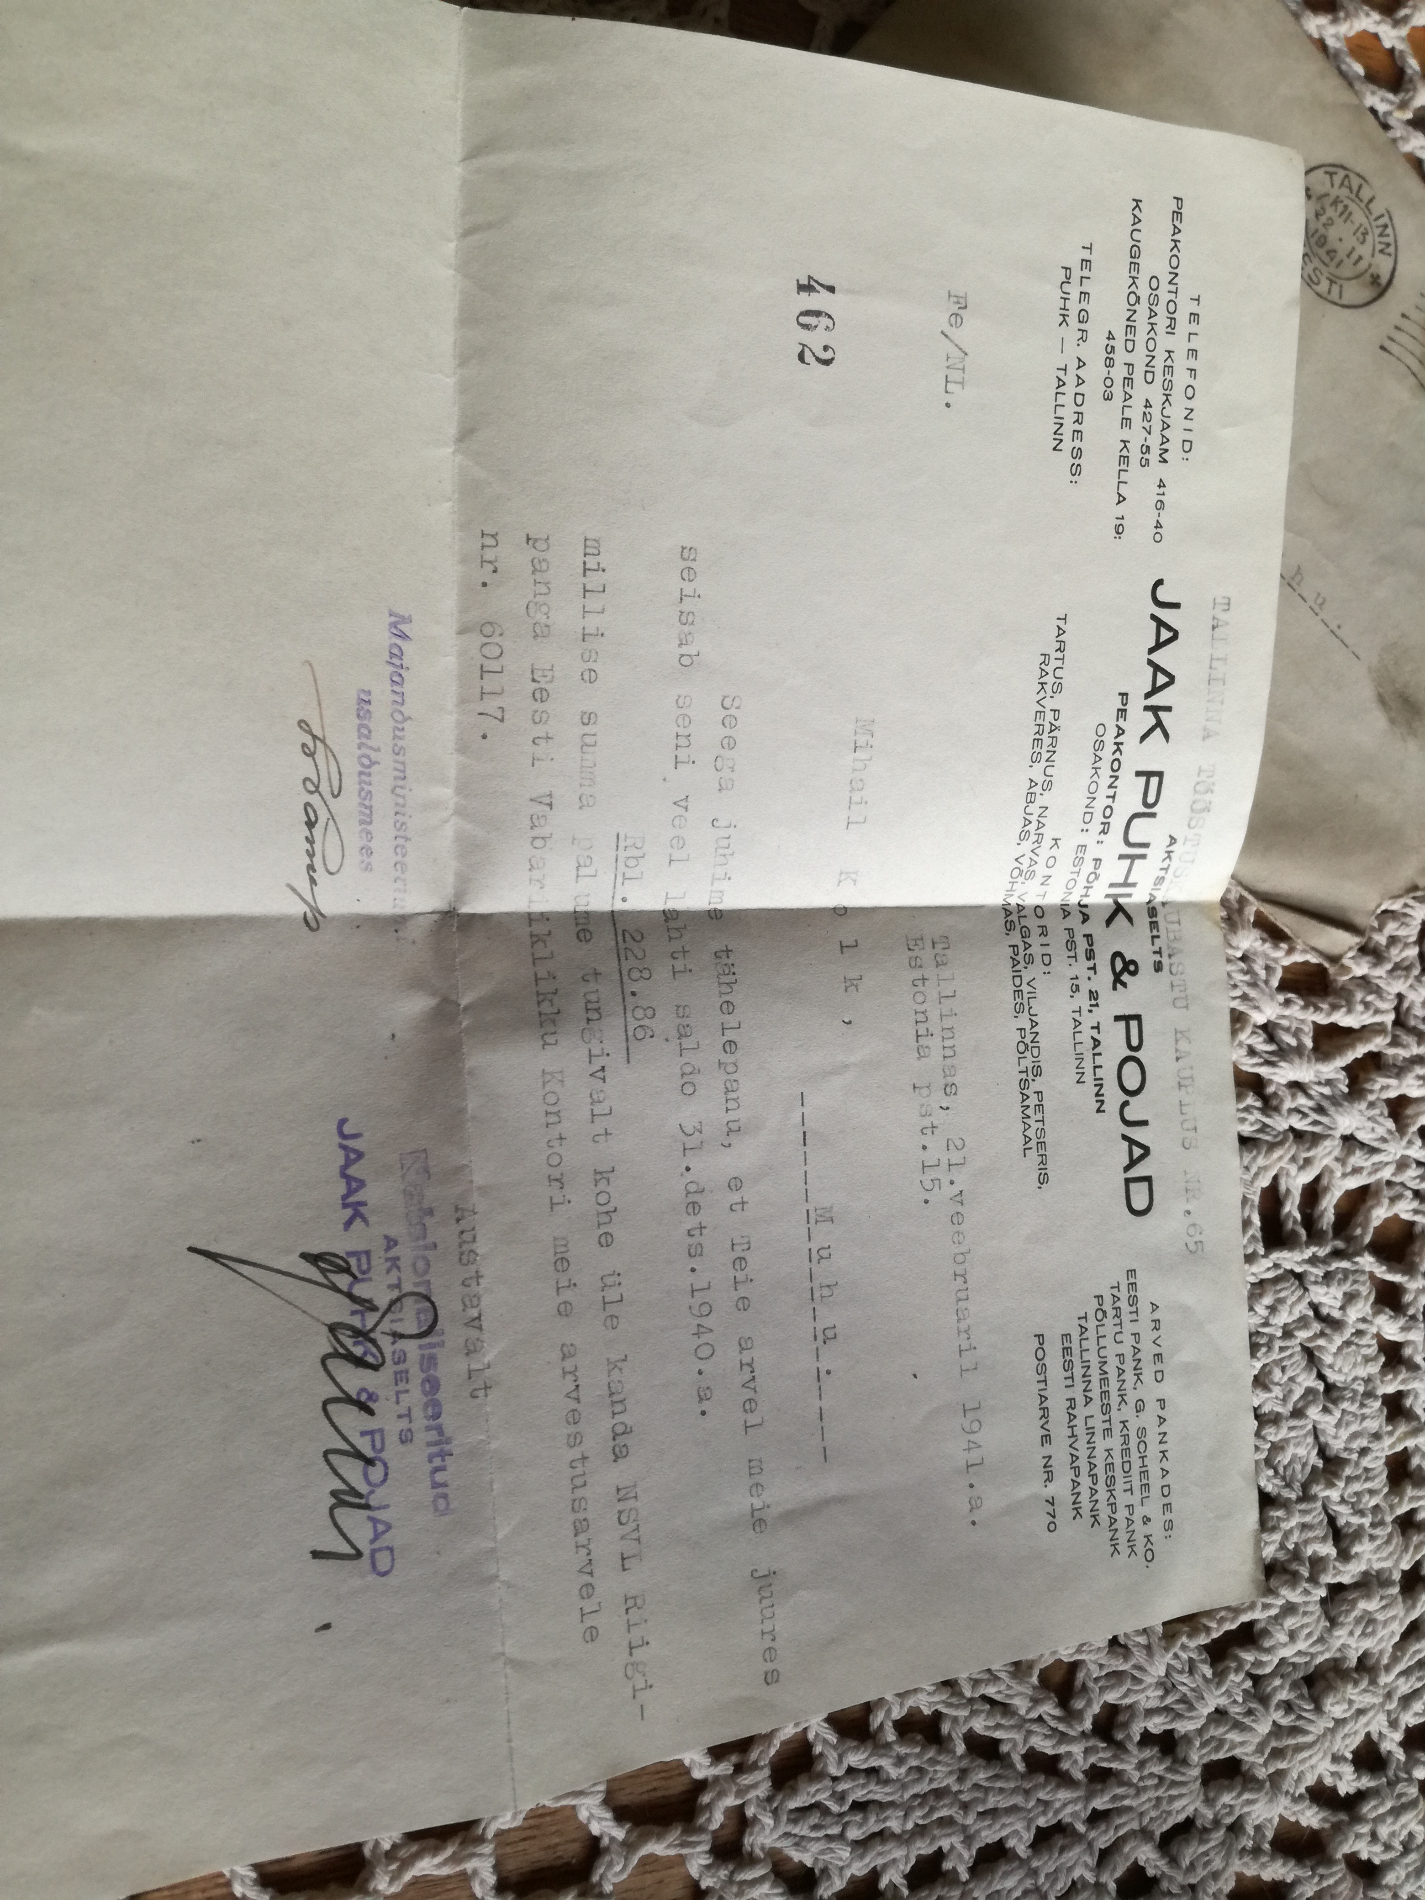 TALLINN
22.II
1941
EESTI
hu.
TALLINNA TÖÖSTUSKAUBASTU KAUPLUS NR.65
TELEFONID:
PEAKONTORI KESKJAAM 416-40
OSAKOND 427-55
KAUGEKÕNED PEALE KELLA 19:
458-03
TELEGR. AADRESS:
PUHK — TALLINN
AKTSIASELTS
JAAK PUHK & POJAD
PEAKONTOR: PÕHJA PST. 21, TALLINN
OSAKOND: ESTONIA PST. 15, TALLINN
KONTORID:
TARTUS, PÄRNUS, NARVAS, VALGAS, VILJANDIS, PETSERIS,
RAKVERES, ABJAS, VÕHMAS, PAIDES, PÕLTSAMAAL
ARVED PANKADES:
EESTI PANK, G. SCHEEL & KO.
TARTU PANK, KREDIIT PANK
PÕLLUMEESTE KESKPANK
TALLINNA LINNAPANK
EESTI RAHVAPANK
POSTIARVE NR. 770
Fe/NL.
Tallinnas, 21.veebruaril 1941.a.
Estonia pst.15.
462
Mihail Kolk,
Muhu.
Seega juhime tähelepanu, et Teie arvel meie juures
seisab seni veel lahti saldo 31.dets.1940.a.
Rbl. 228.86
millise summa palume tungivalt kohe üle kanda NSVL Riigi-
panga Eesti Vabariikliku Kontori meie arvestusarvele
nr. 60117.
Austavalt
Majandusministeeriumi
usaldusmees
Natsionaliseeritud
AKTSIASELTS
JAAK PUHK & POJAD